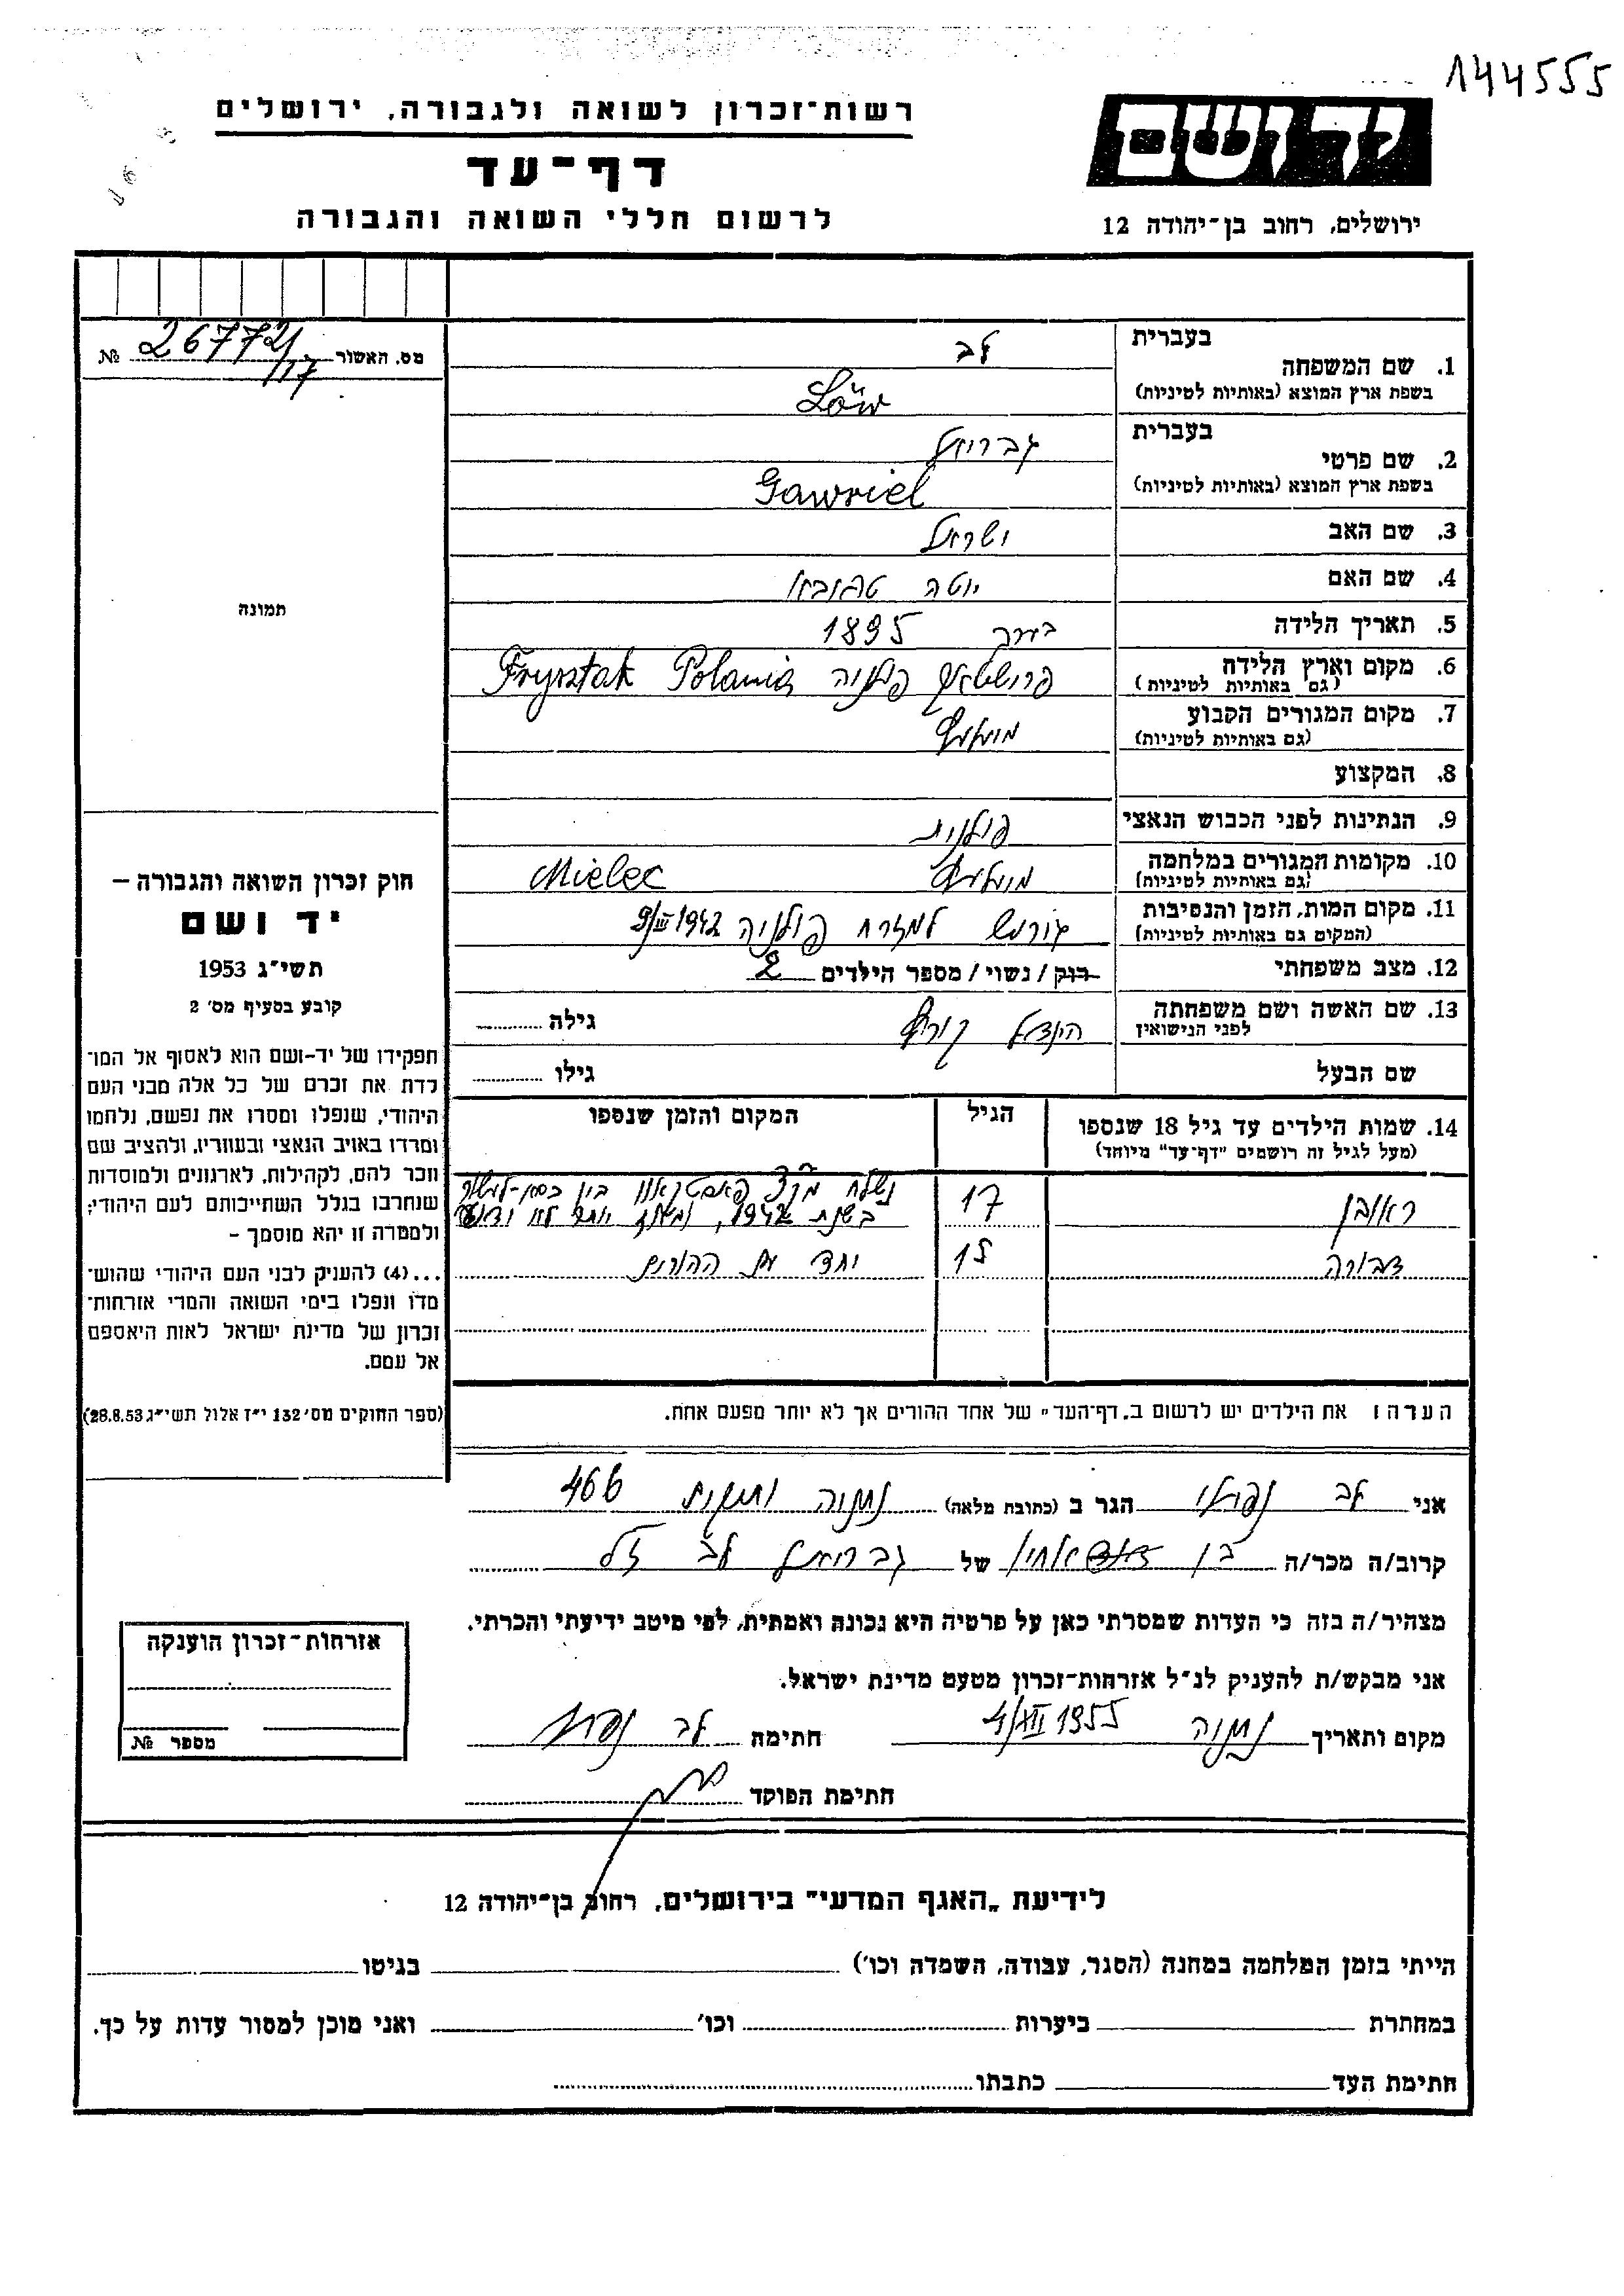 144555
יד ושם
ירושלים, רחוב בן־יהודה 12
רשות־זכרון לשואה ולגבורה, ירושלים
דף־עד
לרשום חללי השואה והגבורה
מס. האשור 26772/17 №
תמונה
חוק זכרון השואה והגבורה –
יד ושם
תשי״ג 1953
קובע בסעיף מס׳ 2
תפקידו של יד-ושם הוא לאסוף אל המו־
לדת את זכרם של כל אלה מבני העם
היהודי, שנפלו ומסרו את נפשם, נלחמו
ומרדו באויב הנאצי ובעוזריו, ולהציב שם
וזכר להם, לקהילות, לארגונים ולמוסדות
שנחרבו בגלל השתייכותם לעם היהודי;
ולמטרה זו יהא מוסמך –
...(4) להעניק לבני העם היהודי שהוש־
מדו ונפלו בימי השואה והמרי אזרחות־
זכרון של מדינת ישראל לאות היאספם
אל עמם.
(ספר החוקים מס׳ 132 י״ז אלול תשי״ג 28.8.53)
1. שם המשפחה בעברית לב
בשפת ארץ המוצא (באותיות לטיניות) Löw
2. שם פרטי בעברית גבריאל
בשפת ארץ המוצא (באותיות לטיניות) Gawriel
3. שם האב ישראל
4. שם האם יוטה
5. תאריך הלידה 1895
6. מקום וארץ הלידה (גם באותיות לטיניות) פרישטאק פולניה Frysztak Polania
7. מקום המגורים הקבוע (גם באותיות לטיניות) מיעלעץ
8. המקצוע
9. הנתינות לפני הכבוש הנאצי פולנית
10. מקומות המגורים במלחמה (גם באותיות לטיניות) מיעלעץ Mielec
11. מקום המות, הזמן והנסיבות (המקום גם באותיות לטיניות) גורש למזרח פולניה 9/III 1942
12. מצב משפחתי רוק / נשוי / מספר הילדים 2
13. שם האשה ושם משפחתה לפני הנישואין הינדל קורץ גילה
שם הבעל גילו
14. שמות הילדים עד גיל 18 שנספו הגיל המקום והזמן שנספו
(מעל לגיל זה רושמים ״דף־עד״ מיוחד)
ראובן 17 נשלח
בשנת 1942, יותר לא ידוע
דבורה 15 יחד עם ההורים
הערה: את הילדים יש לרשום ב„דף־העד״ של אחד ההורים אך לא יותר מפעם אחת.
אני לב נפתלי הגר ב (כתובת מלאה) נתניה ותיקים 466
קרוב/ה מכר/ה בן של גבריאל לב ז״ל
מצהיר/ה בזה כי העדות שמסרתי כאן על פרטיה היא נכונה ואמתית, לפי מיטב ידיעתי והכרתי.
אני מבקש/ת להעניק לנ״ל אזרחות־זכרון מטעם מדינת ישראל.
מקום ותאריך נתניה 4/XII 1955 חתימה לב נפתלי
חתימת הפוקד
אזרחות־זכרון הוענקה
מספר №
לידיעת „האגף המדעי״ בירושלים, רחוב בן־יהודה 12
הייתי בזמן המלחמה במחנה (הסגר, עבודה, השמדה וכו׳) בגיטו
במחתרת ביערות וכו׳ ואני מוכן למסור עדות על כך.
חתימת העד כתבתו